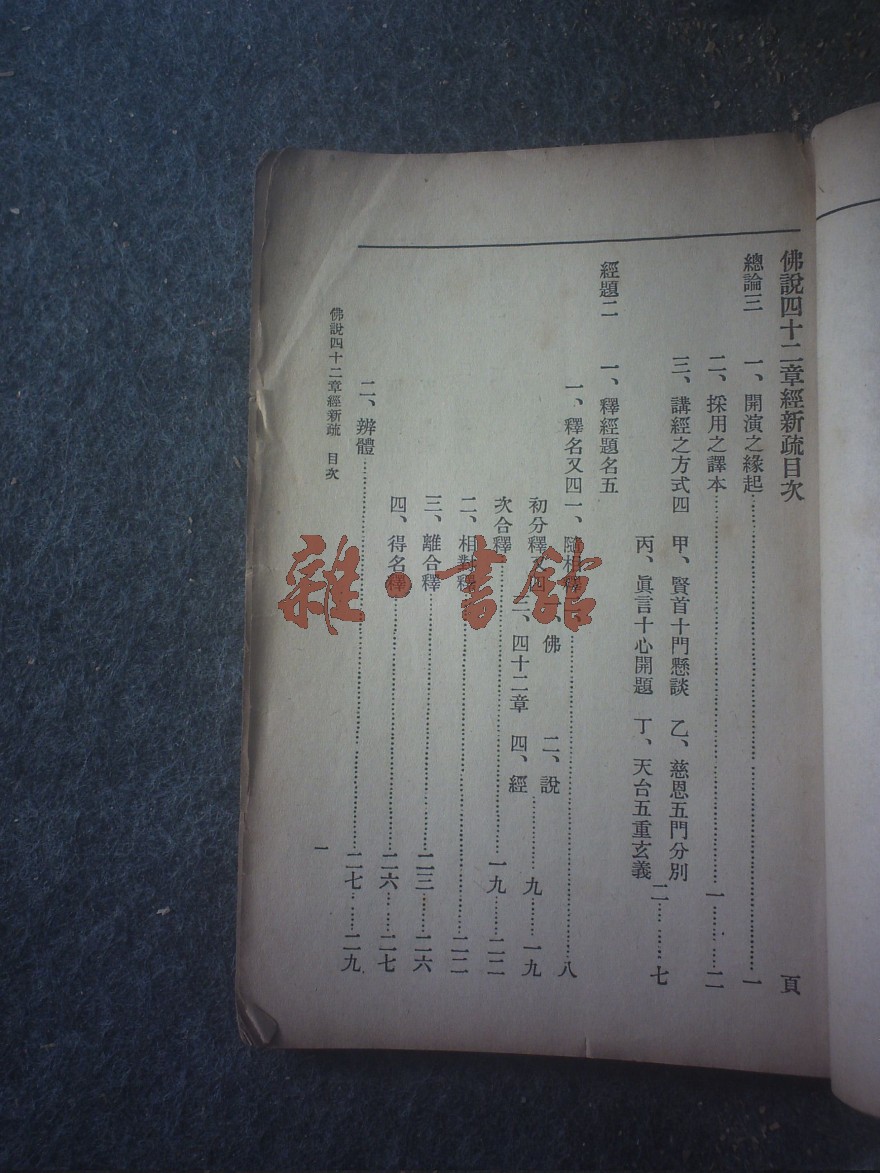 佛說四十二章經新疏目次
頁
總論三 一、開演之緣起………一
二、採用之譯本………一……二
三、講經之方式四 甲、賢首十門懸談 乙、慈恩五門分別
丙、眞言十心開題 丁、天台五重玄義
二……七
經題二 一、釋經題名五
一、釋名又四 一、隨相釋二………八
初分釋又四 一、佛 二、說
三、四十二章 四、經
九……一九
次合釋………一九……二二
二、相對釋………二二
三、離合釋………二三……二六
四、得名釋………二六……二七
二、辨體………二七……二九
佛說四十二章經新疏 目次
一
雜·書館